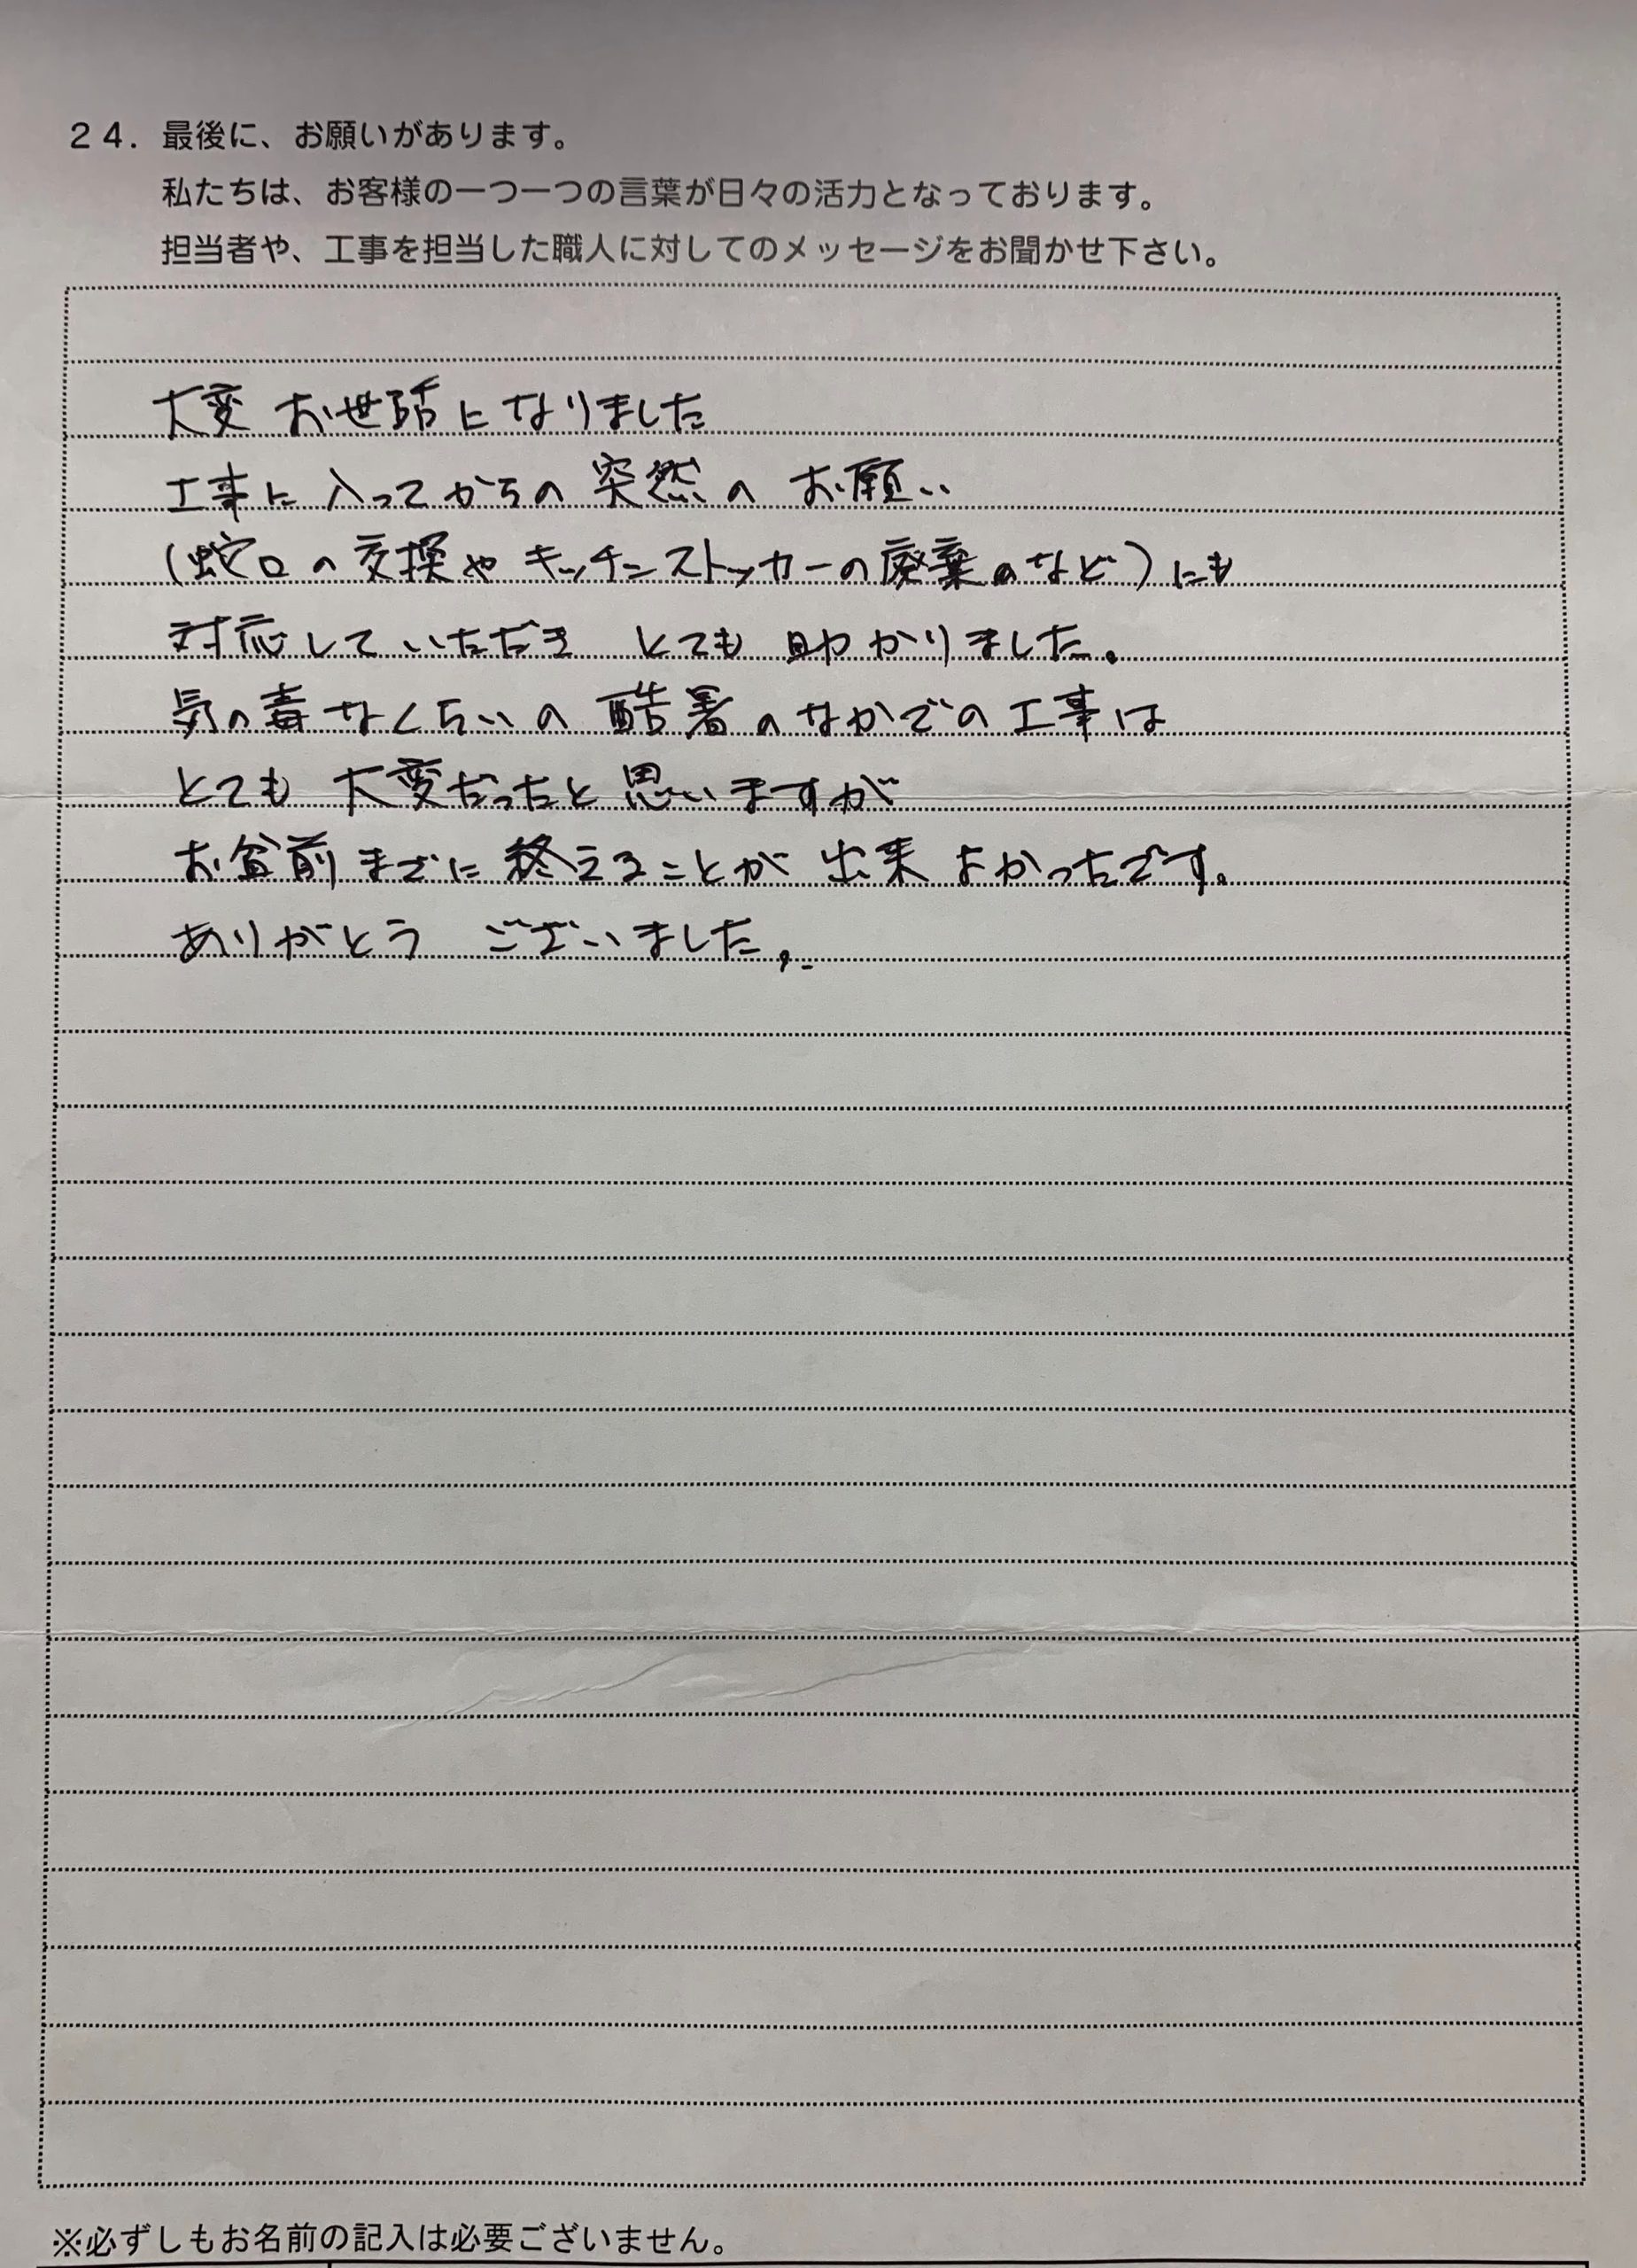 24. 最後に、お願いがあります。
私たちは、お客様の一つ一つの言葉が日々の活力となっております。
担当者や、工事を担当した職人に対してのメッセージをお聞かせ下さい。
大変 お世話に なりました
工事に 入ってからの 突然の お願い
(蛇口の交換や キッチンストッカーの廃棄のなど)にも
対応して いただき とても 助かりました。
気の毒なくらいの 酷暑のなかでの工事は
とても 大変だったと思いますが
お盆前までに 終えることが 出来 よかったです。
ありがとう ございました。
※必ずしもお名前の記入は必要ございません。